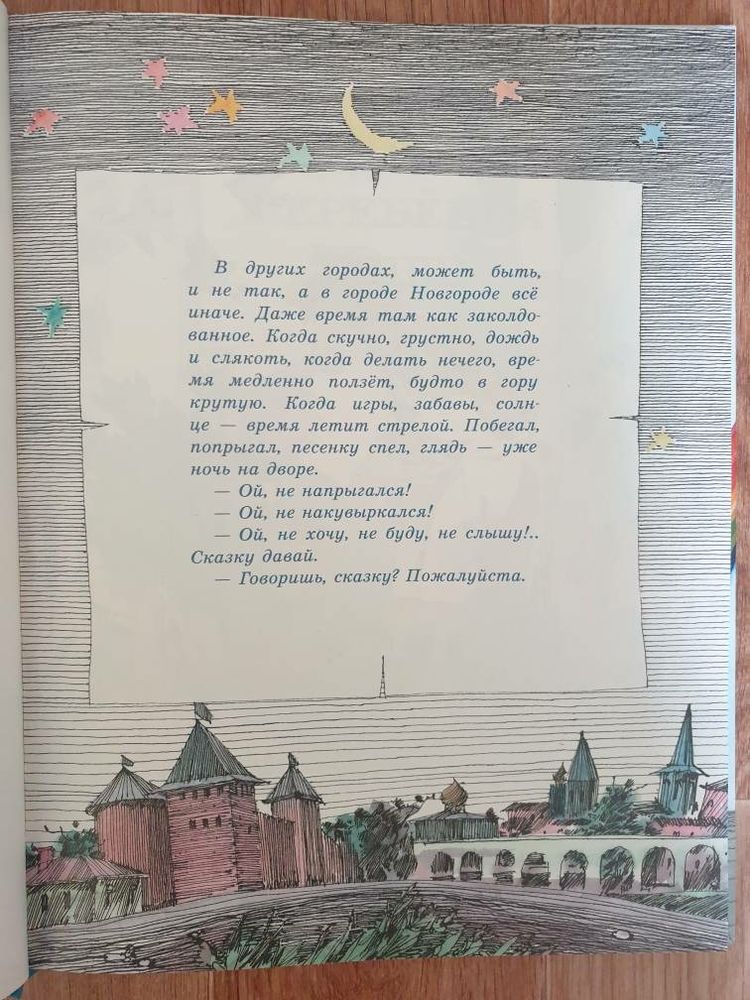 В других городах, может быть,
и не так, а в городе Новгороде всё
иначе. Даже время там как заколдо-
ванное. Когда скучно, грустно, дождь
и слякоть, когда делать нечего, вре-
мя медленно ползёт, будто в гору
крутую. Когда игры, забавы, солн-
це — время летит стрелой. Побегал,
попрыгал, песенку спел, глядь — уже
ночь на дворе.
— Ой, не напрыгался!
— Ой, не накувыркался!
— Ой, не хочу, не буду, не слышу!..
Сказку давай.
— Говоришь, сказку? Пожалуйста.